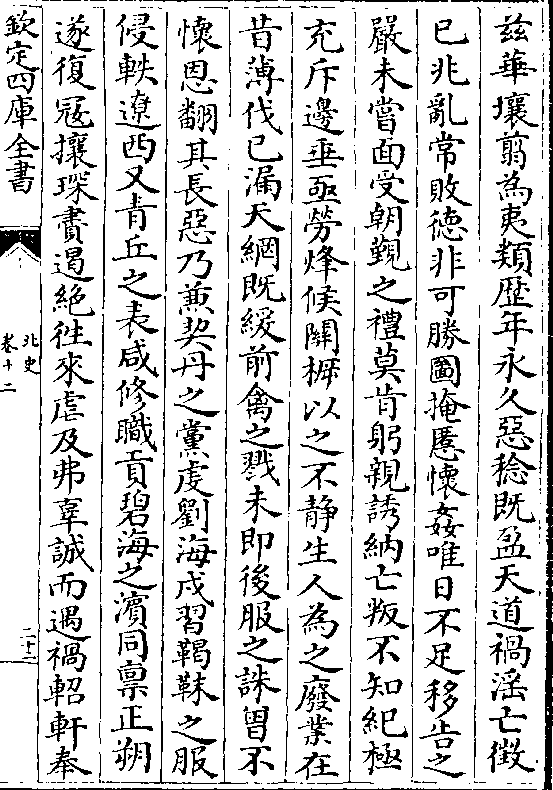 兹華壤翦為夷類歴年永久惡稔既盈天道禍淫亡徴
已兆亂常敗徳非可勝圖掩慝懷姦唯日不足移告之
嚴未嘗面受朝覲之禮莫肯躬親誘納亡叛不知紀極
充斥邊垂亟勞烽候關柝以之不静生人為之廢業在
昔薄伐已漏天網既緩前禽之戮未即後服之誅曽不
懷恩翻其長惡乃兼契丹之黨虔劉海戍習靺鞨之服
侵軼遼西又青丘之表咸修職貢碧海之濱同禀正朔
遂復冦攘琛賮遏絶徃來虐及弗辜誠而遇禍軺軒奉
欽定四庫全書
北史
卷十二
二十三